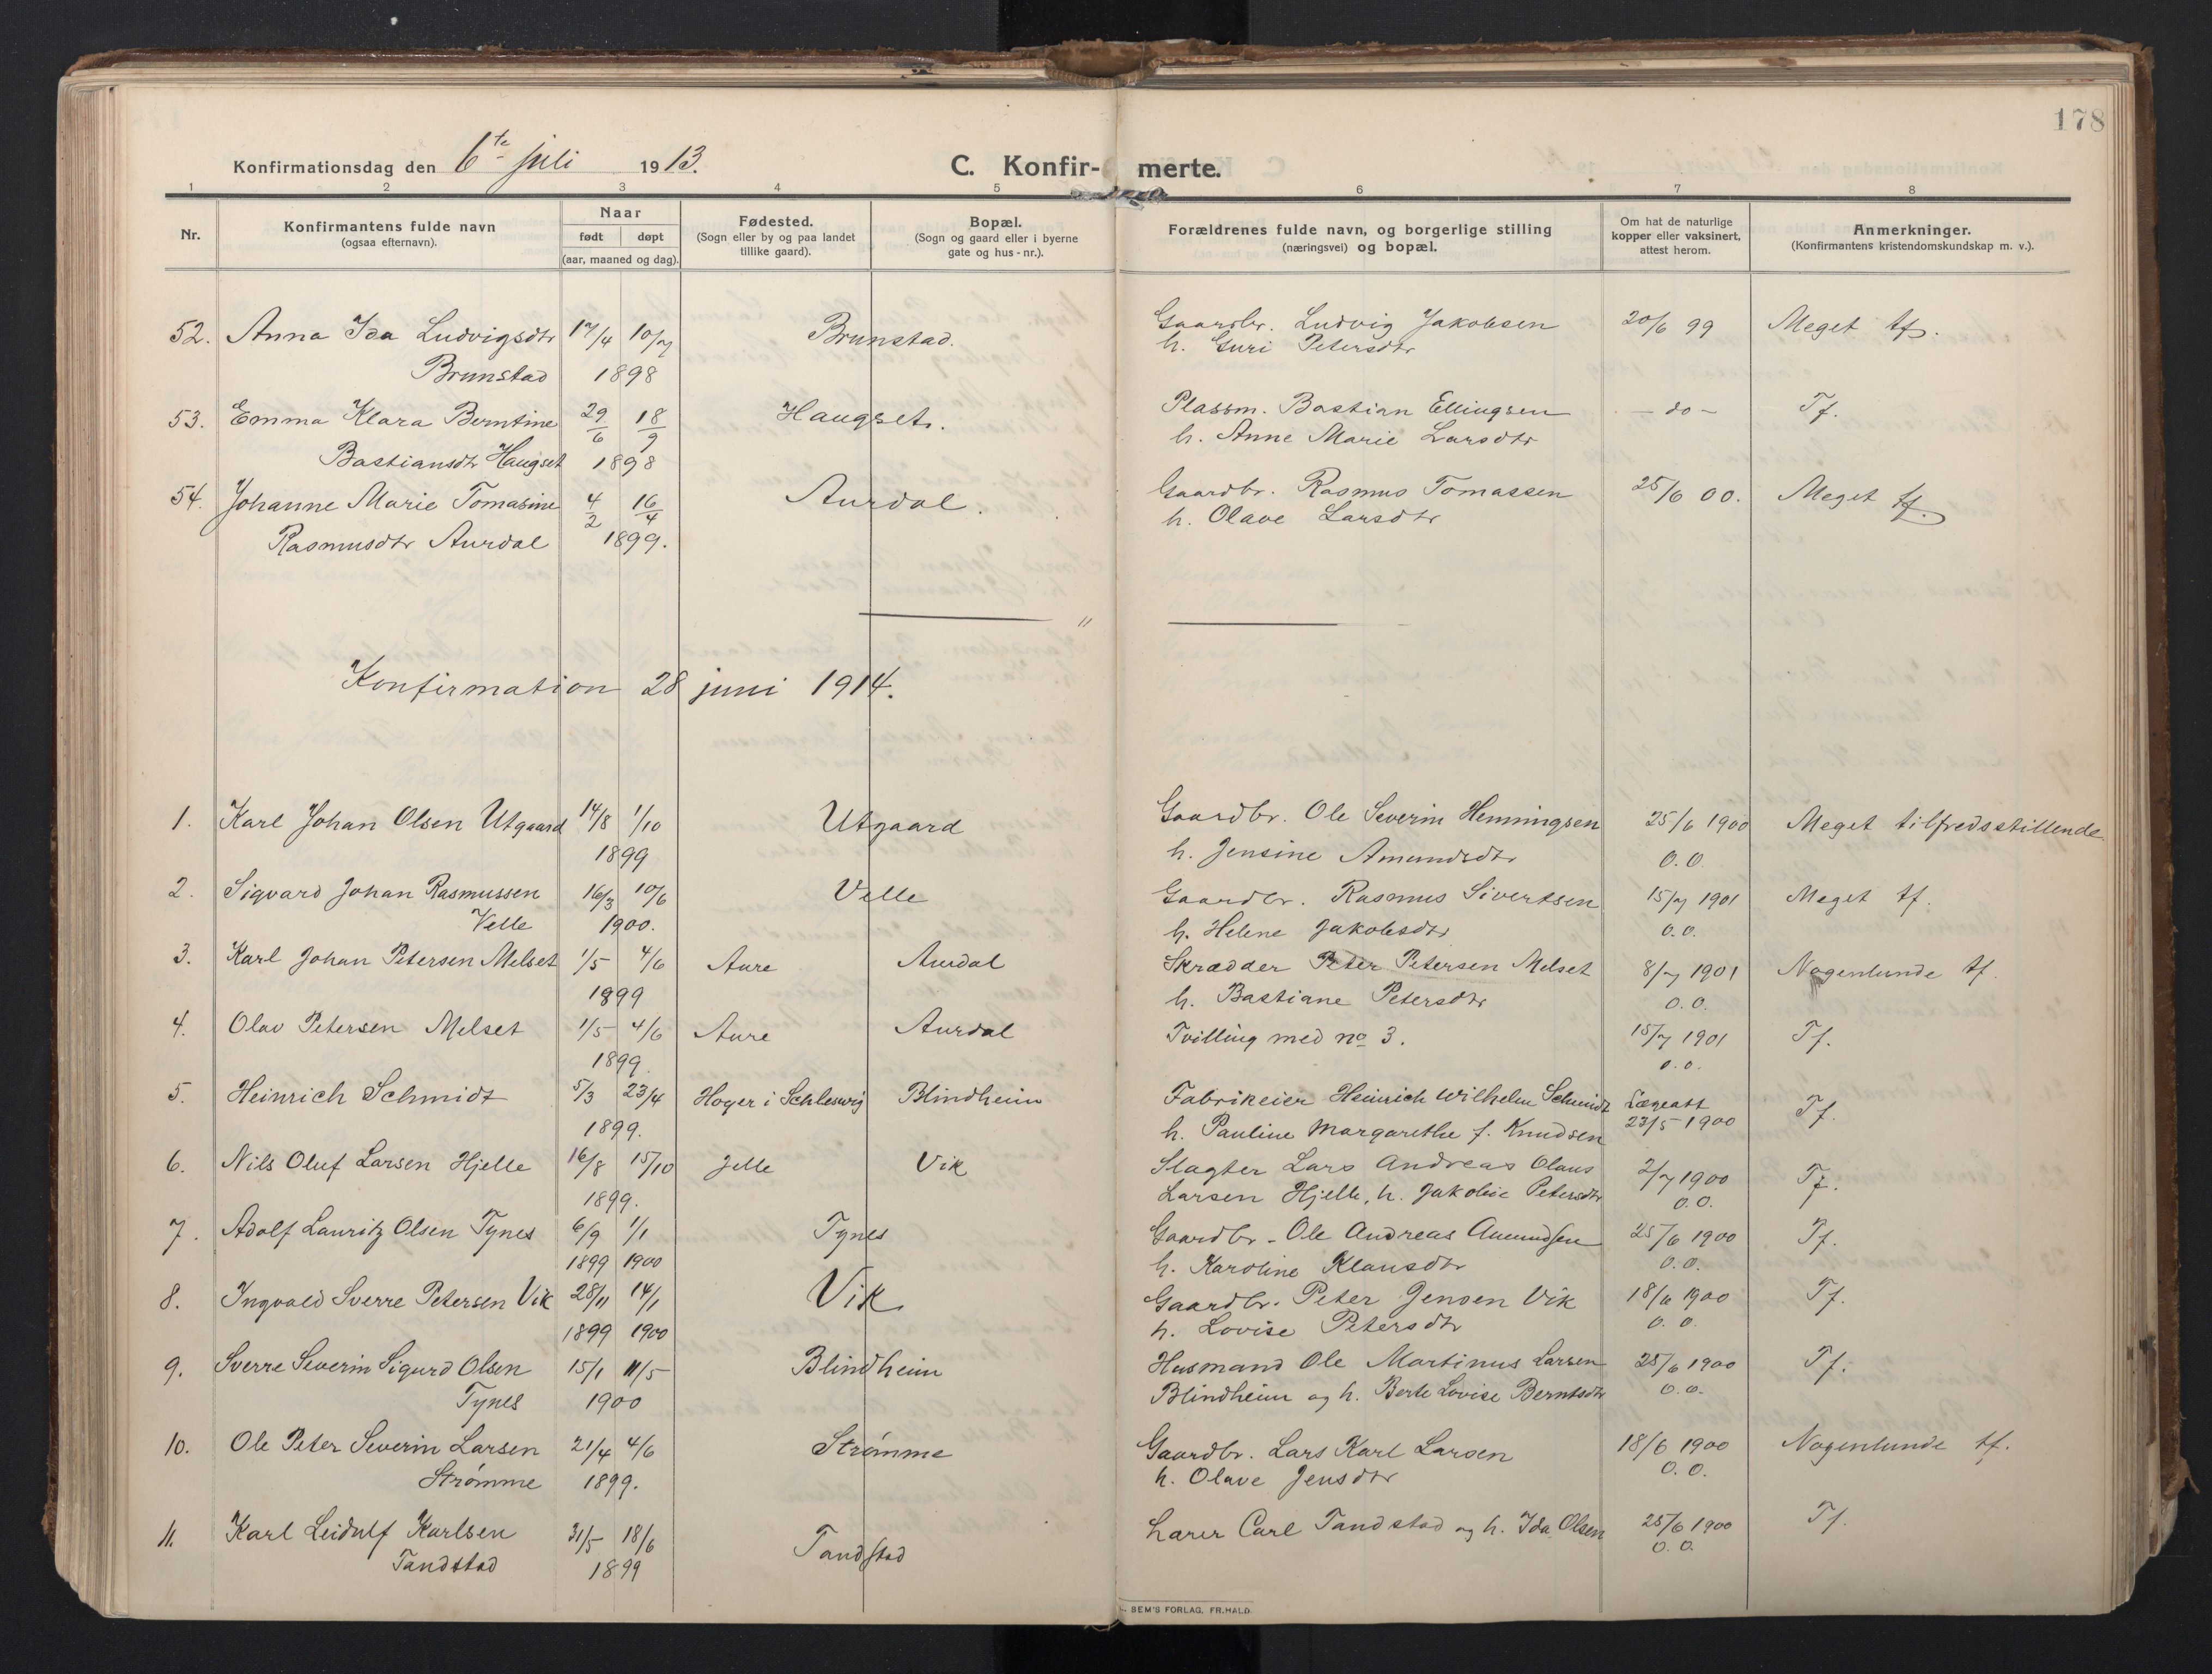 178
Konfirmationsdag den 6te juli 1913.
C. Konfir- merte.
1 2 3 4 5 6 7 8
Nr.
Konfirmantens fulde navn
(ogsaa efternavn).
Naar
født døpt
(aar, maaned og dag).
Fødested.
(Sogn eller by og paa landet
tillike gaard).
Bopæl.
(Sogn og gaard eller i byerne
gate og hus-nr.).
Forældrenes fulde navn, og borgerlige stilling
(næringsvei) og bopæl.
Om hat de naturlige
kopper eller vaksinert,
attest herom.
Anmerkninger.
(Konfirmantens kristendomskundskap m. v.).
52. Anna Ida Ludvigsdtr 17/4 10/7 Brunstad. Gaardbr. Ludvig Jakobsen 20/6 99 Meget tf.
Brunstad 1898 h. Guri Petersdtr
53. Emma Klara Berntine 29/6 18/9 Haugset. Plassm. Bastian Ellingsen - do - Tf.
Bastiansdtr Haugset 1898 h. Anne Marie Larsdtr
54. Johanne Marie Tomasine 4/2 16/4 Aurdal. Gaardbr. Rasmus Tomassen 25/6 00. Meget tf.
Rasmusdtr Aurdal 1899. h. Olave Larsdtr
Konfirmation 28 juni 1914.
1. Karl Johan Olsen Utgaard 14/8 1/10 Utgaard Gaardbr. Ole Severin Henningsen 25/6 1900 Meget tilfredsstillende
1899 h. Jensine Amundsdtr o.o.
2. Sigvard Johan Rasmussen 16/3 10/6 Velle Gaardbr. Rasmus Sivertsen 15/7 1901 Meget tf.
Velle 1900. h. Helene Jakobsdtr o.o.
3. Karl Johan Petersen Melset 1/5 4/6 Aure Aurdal Skrædder Peter Petersen Melset 8/7 1901 Nogenlunde tf.
1899 h. Bastiane Petersdtr o.o.
4. Olav Petersen Melset 1/5 4/6 Aure Aurdal Tvilling med no 3. 15/7 1901 Tf.
1899. o.o.
5. Heinrich Schmidt 5/3 23/4 Hoger i Schleswig Blindheim Fabrikeier Heinrich Wilhelm Schmidt Lægeatt Tf.
1899. h. Pauline Margarethe f. Knudsen 23/5 1900
6. Nils Oluf Larsen Hjelle 16/8 15/10 Jelle Vik Slagter Lars Andreas Olaus 2/7 1900 Tf.
1899. Larsen Hjelle, h. Jakobie Petersdtr o.o.
7. Adolf Lauritz Olsen Tynes 6/9 1/1 Tynes Gaardbr. Ole Andreas Amundsen 25/6 1900 Tf.
1899 1900 h. Karoline Klausdtr o.o.
8. Ingvald Sverre Petersen Vik 28/11 14/1 Vik Gaardbr. Peter Jensen Vik 18/6 1900 Tf.
1899 1900 h. Lovise Petersdtr o.o.
9. Sverre Severin Sigurd Olsen 15/1 11/5 Blindheim Husmand Ole Martinus Larsen 25/6 1900 Tf.
Tynes 1900 Blindheim og h. Berte Lovise Berntsdtr o.o.
10. Ole Peter Severin Larsen 21/4 4/6 Strømme Gaardbr. Lars Karl Larsen 18/6 1900 Nogenlunde tf.
Strømme 1899. h. Olave Jensdtr o.o.
11. Karl Leidulf Karlsen 31/5 18/6 Tandstad Lærer Carl Tandstad og h. Ida Olsen 25/6 1900 Tf.
Tandstad 1899 o.o.
SEM'S FORLAG, FR.HALD